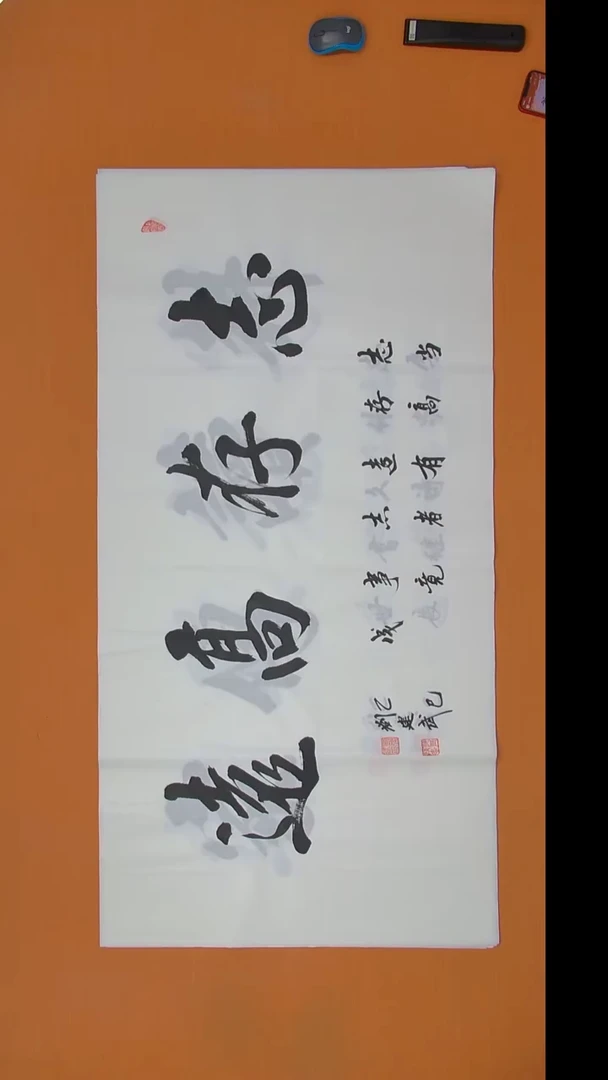 志存高遠
志当
存高
遠有
志者
事竟
成
乙巳
劉建武